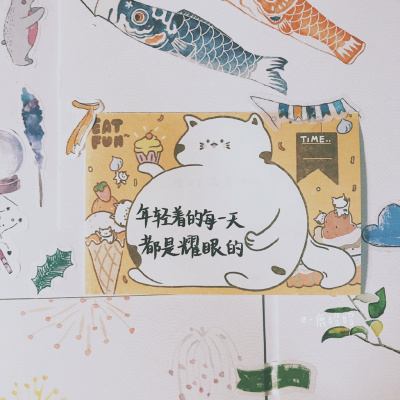 EAT
FUN
TIME..
年轻着的每一天
都是耀眼的